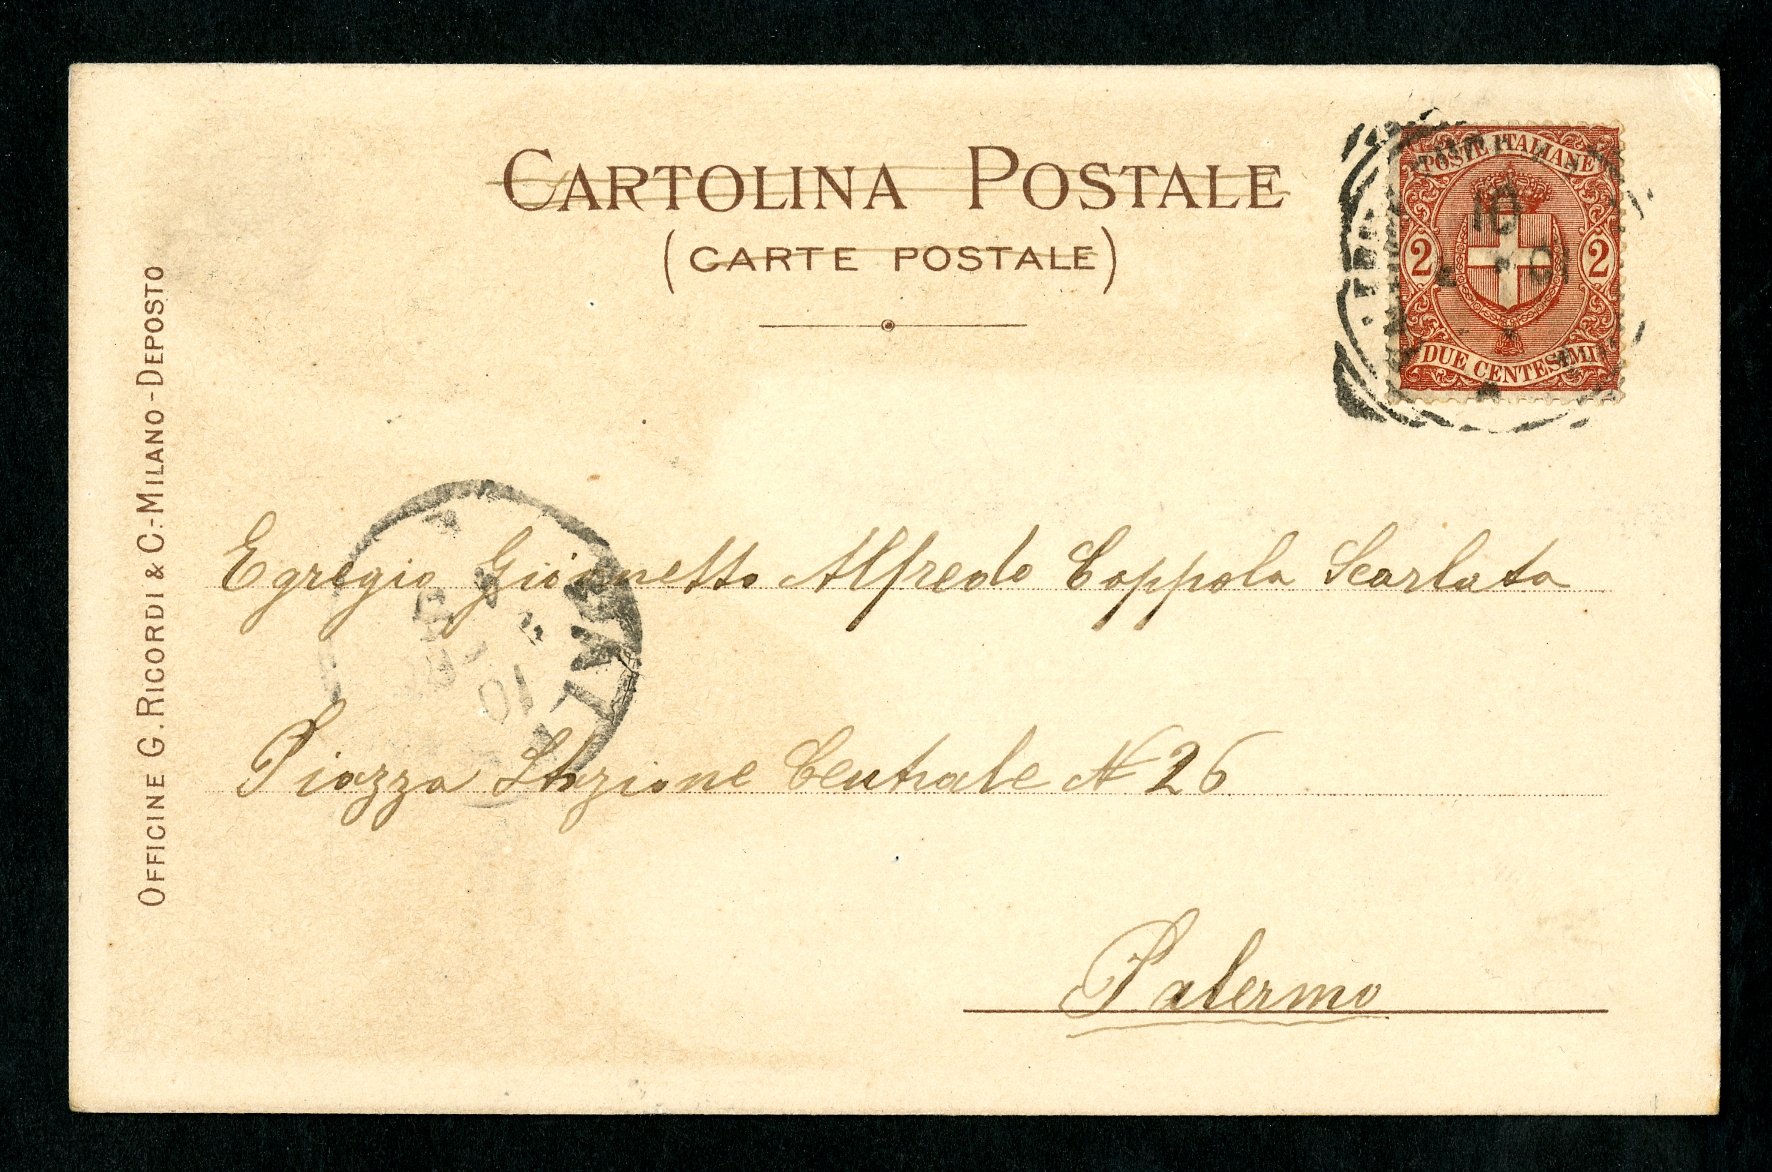 CARTOLINA POSTALE
(CARTE POSTALE)
POSTE ITALIANE
2 2
DUE CENTESIMI
10
01
OFFICINE G. RICORDI & C.-MILANO-DEPOSTO
Egregio Giovinetto Alfredo Coppola Scarlata
01
Piazza Stazione Centrale N 26
Palermo